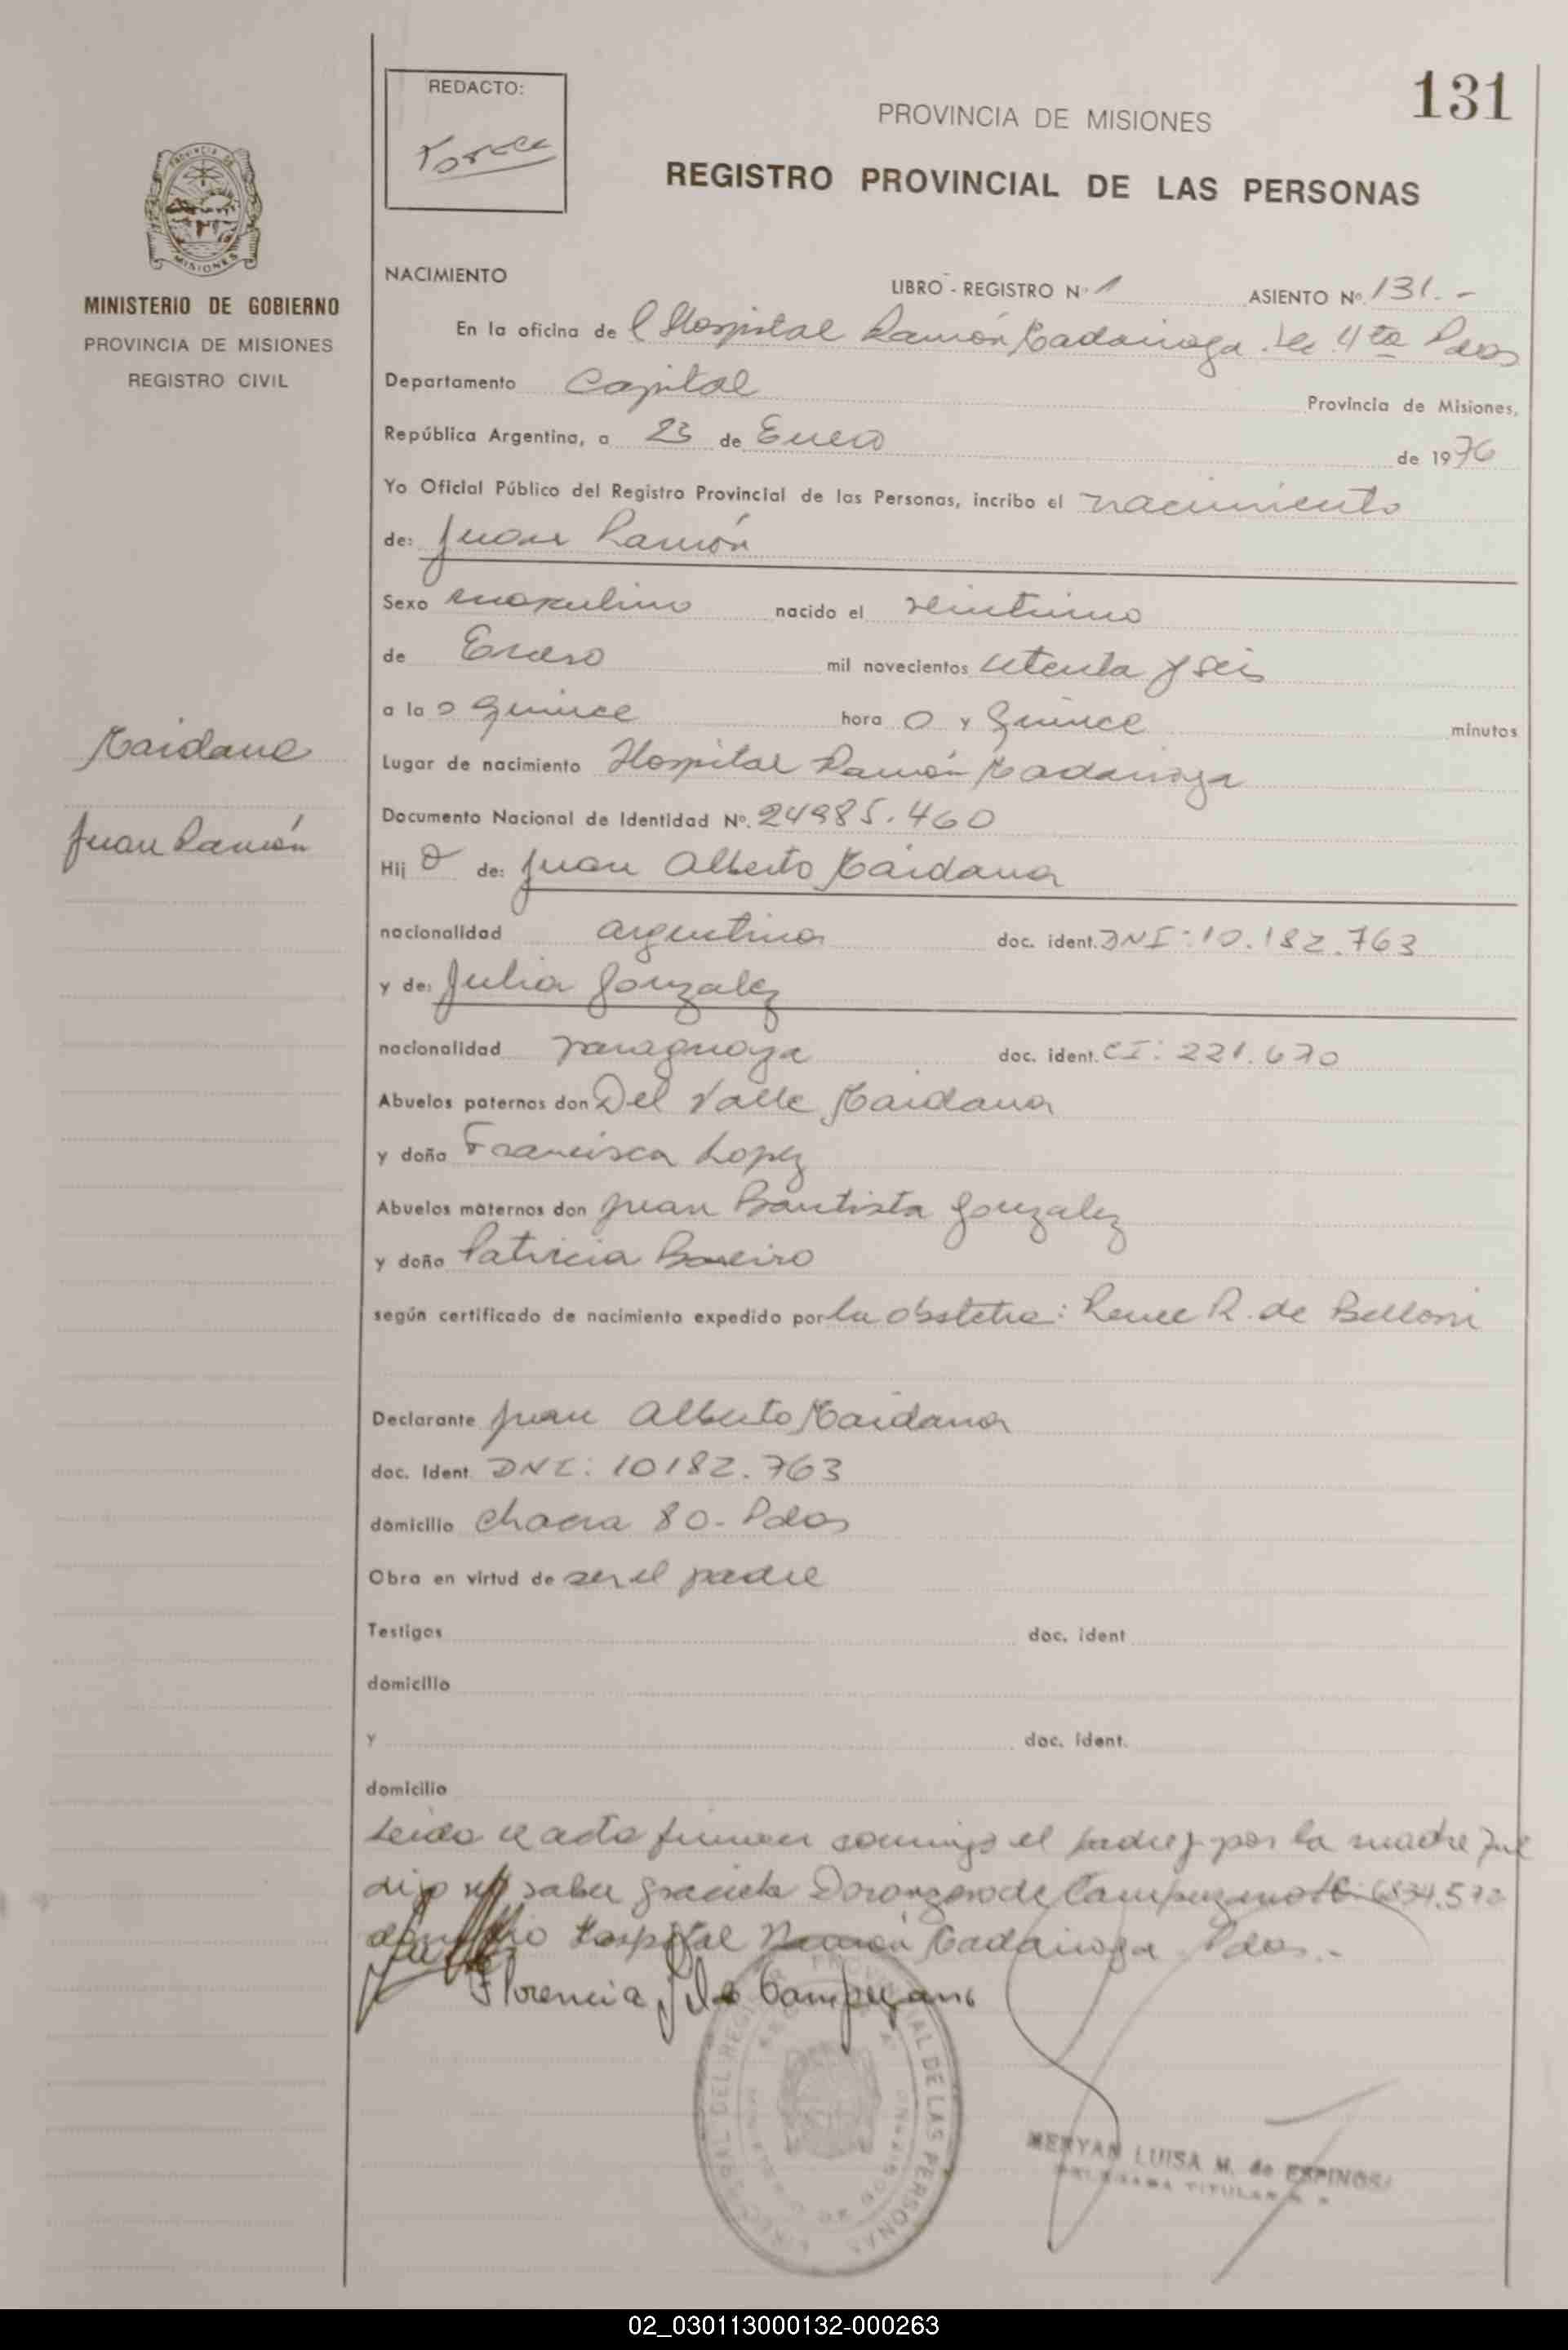 131
REDACTO:
PROVINCIA DE MISIONES
REGISTRO PROVINCIAL DE LAS PERSONAS
MINISTERIO DE GOBIERNO
PROVINCIA DE MISIONES
REGISTRO CIVIL
NACIMIENTO LIBRO - REGISTRO Nº 1 ASIENTO Nº 131.-
En la oficina de l Hospital Ramón Madariaga. Sec 4ta Pdas
Departamento Capital Provincia de Misiones,
República Argentina, a 23 de Enero de 1976
Yo Oficial Público del Registro Provincial de las Personas, incribo el nacimiento
de: Juan Ramón
Sexo masculino nacido el veintiuno
de Enero mil novecientos setenta y seis
a la s quince hora 0 y quince minutos
Maidana
Juan Ramón
Lugar de nacimiento Hospital Ramón Madariaga
Documento Nacional de Identidad Nº. 24985.460
Hij o de: Juan Alberto Maidana
nacionalidad argentina doc. ident. DNI: 10.182.763
y de: Julia Gonzalez
nacionalidad paraguaya doc. ident. CI: 221.670
Abuelos paternos don Del Valle Maidana
y doña Francisca Lopez
Abuelos maternos don Juan Bautista Gonzalez
y doña Patricia
según certificado de nacimiento expedido por la obstetra: Renee R. de Belloni
Declarante Juan Alberto Maidana
doc. Ident. DNI: 10182.763
domicilio chacra 80- Pdas
Obra en virtud de ser el padre
Testigos doc. ident
domicilio
y doc. ident.
domicilio
Leida el acta firman conmigo el padre y por la madre que
dijo no saber de Campuzano
domicilio Hospital Ramón Madariaga Pdas.-
Florencia de Campuzano
MERYAN LUISA M. de ESPINOSA
DELEGADA TITULAR
02_030113000132-000263